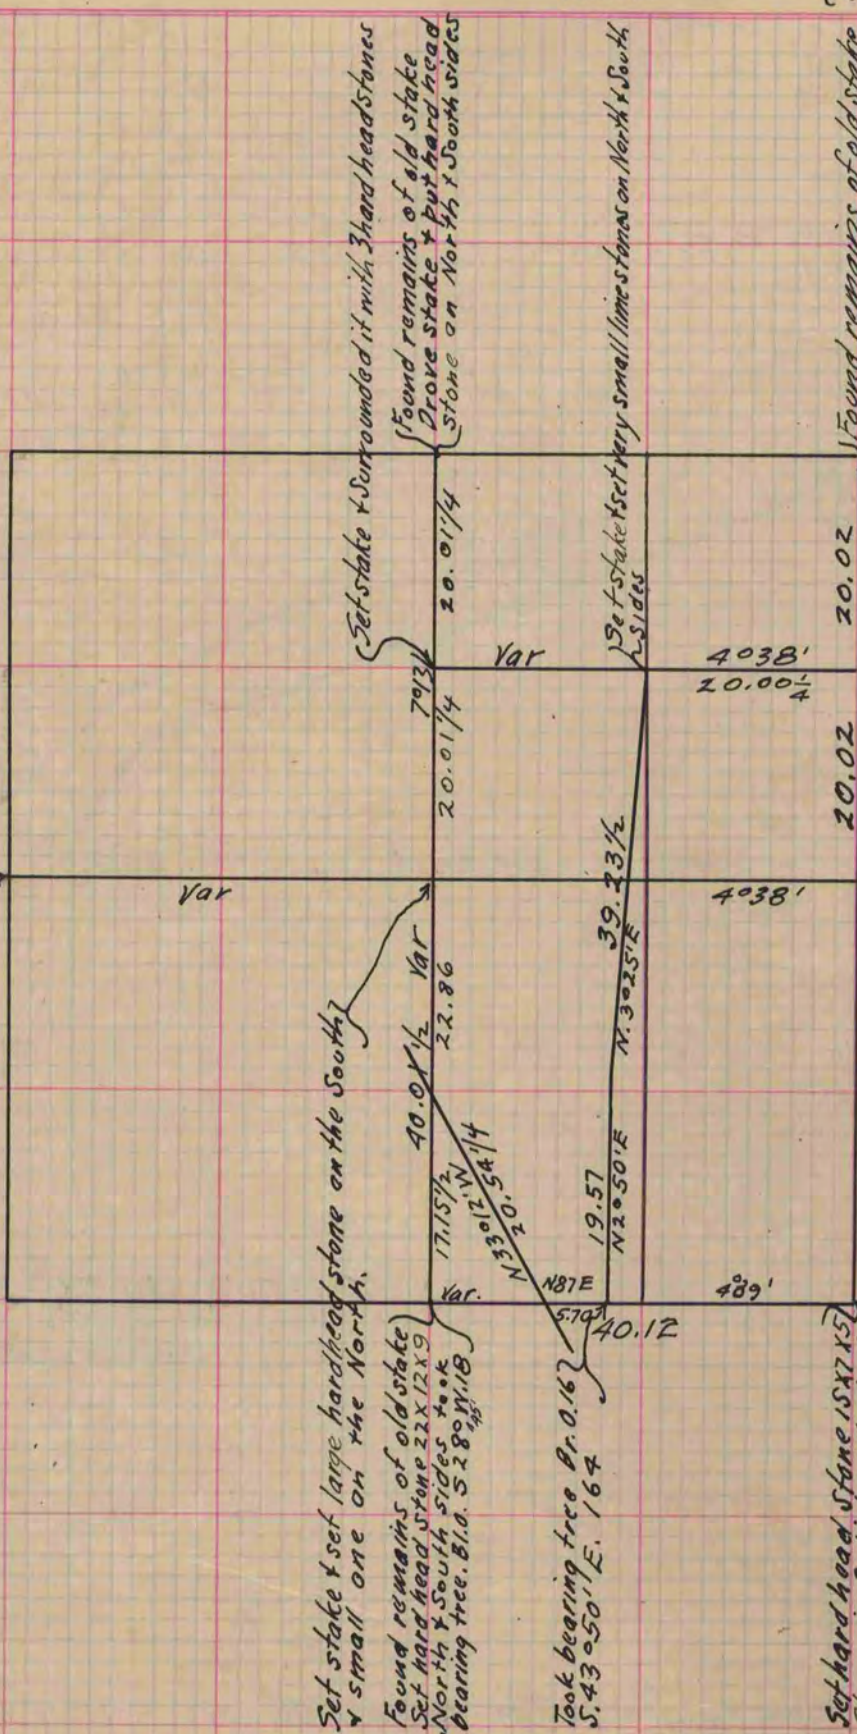 Set stake & Surrounded it with 3 hard head stones
Found remains of old stake
Drove stake & put hard head
stone on North & South sides
Set stake & set very small lime stones on North & South
sides
Found remains of old stake
20.01 1/4
7°13'
20.01 1/4
Var
4°38'
20.00 1/4
20.02
20.02
Var
4°38'
39.23 1/2
N. 3°25'E
Var
22.86
40.01 1/2
17.15 1/2
N33°12'W
20.54 1/4
19.57
N2°50'E
Var.
N87E
5.70
40.12
Set stake & set large hardhead stone on the South
& small one on the North.
Found remains of old stake
Set hard head stone 22x12x9
North & South sides took
bearing tree. Bl.O. S 28° W.18
45'
Took bearing tree Br.O.16
S.43°50' E. 164
Set hard head stone 15x7x5